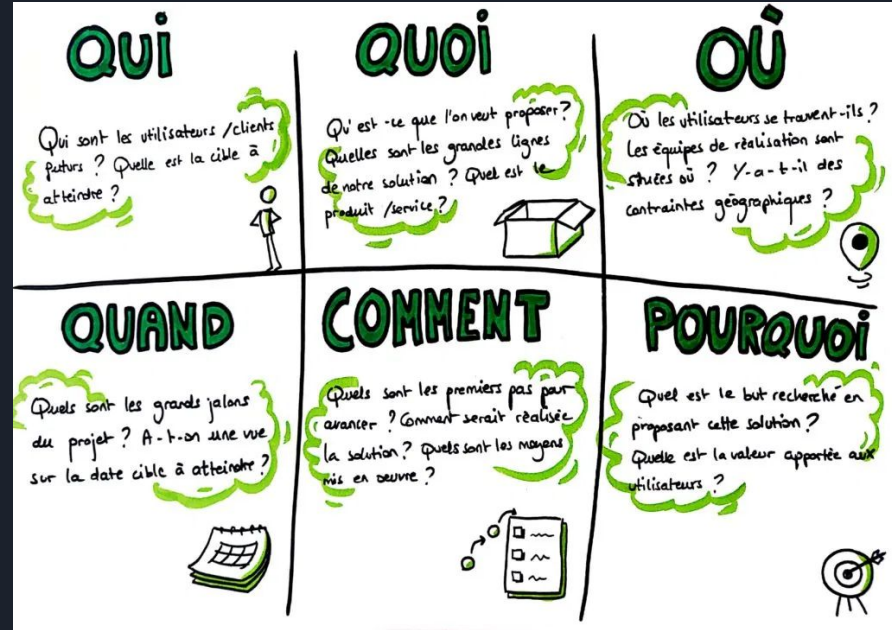 QUI
Qui sont les utilisateurs / clients
futurs ? Quelle est la cible à
atteindre ?
QUOI
Qu'est-ce que l'on veut proposer ?
Quelles sont les grandes lignes
de notre solution ? Quel est le
produit / service ?
OÙ
Où les utilisateurs se trouvent-ils ?
Les équipes de réalisation sont
situées où ? Y-a-t-il des
contraintes géographiques ?
QUAND
Quels sont les grands jalons
du projet ? A-t-on une vue
sur la date cible à atteindre ?
COMMENT
Quels sont les premiers pas pour
avancer ? Comment serait réalisée
la solution ? Quels sont les moyens
mis en oeuvre ?
POURQUOI
Quel est le but recherché en
proposant cette solution ?
Quelle est la valeur apportée aux
utilisateurs ?